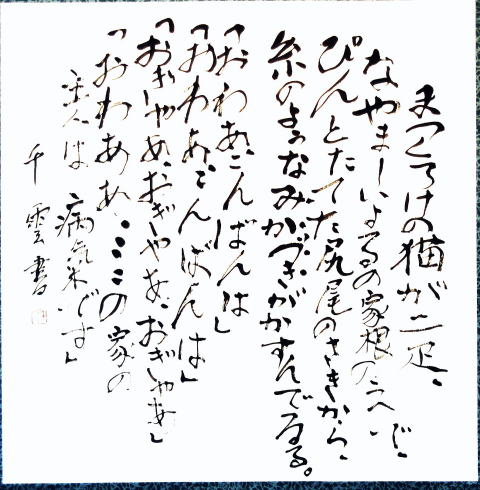 まつくろけの猫が二疋、
なやましいよるの家根のうへで、
ぴんとたてた尻尾のさきから、
糸のやうなみかづきがかすんでゐる。
「おわあ、こんばんは」
「おわあ、こんばんは」
「おぎやあ、おぎやあ、おぎやあ」
「おわああ、ここの家の
主人は 病氣です」
千雲書